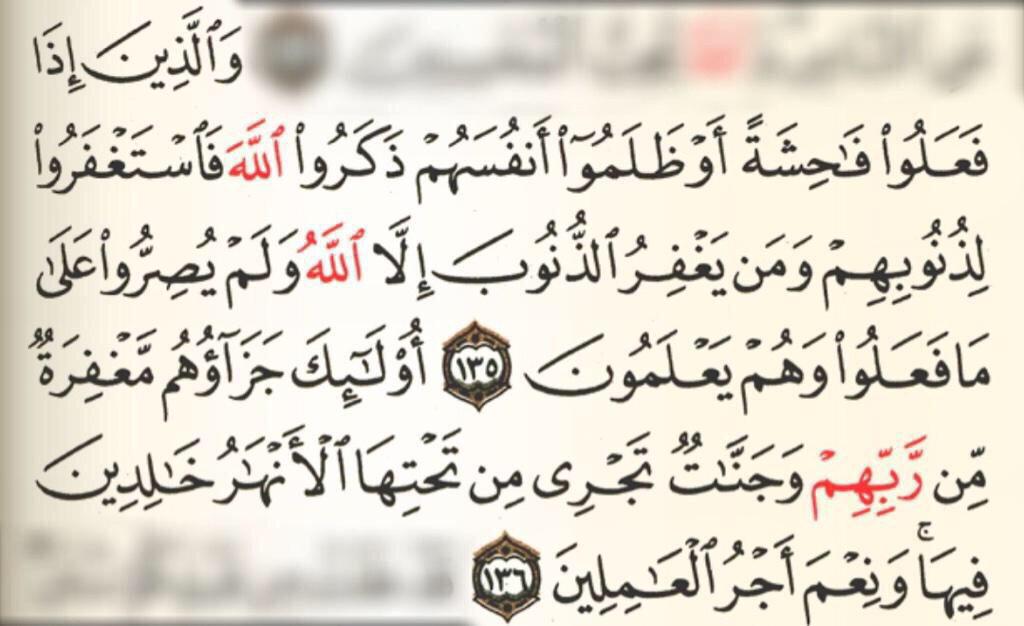 وَٱلَّذِينَ إِذَا
فَعَلُوا۟ فَٰحِشَةً أَوْ ظَلَمُوٓا۟ أَنفُسَهُمْ ذَكَرُوا۟ ٱللَّهَ فَٱسْتَغْفَرُوا۟
لِذُنُوبِهِمْ وَمَن يَغْفِرُ ٱلذُّنُوبَ إِلَّا ٱللَّهُ وَلَمْ يُصِرُّوا۟ عَلَىٰ
مَا فَعَلُوا۟ وَهُمْ يَعْلَمُونَ ١٣٥ أُو۟لَٰٓئِكَ جَزَآؤُهُم مَّغْفِرَةٌ
مِّن رَّبِّهِمْ وَجَنَّٰتٌ تَجْرِى مِن تَحْتِهَا ٱلْأَنْهَٰرُ خَٰلِدِينَ
فِيهَا ۚ وَنِعْمَ أَجْرُ ٱلْعَٰمِلِينَ ١٣٦